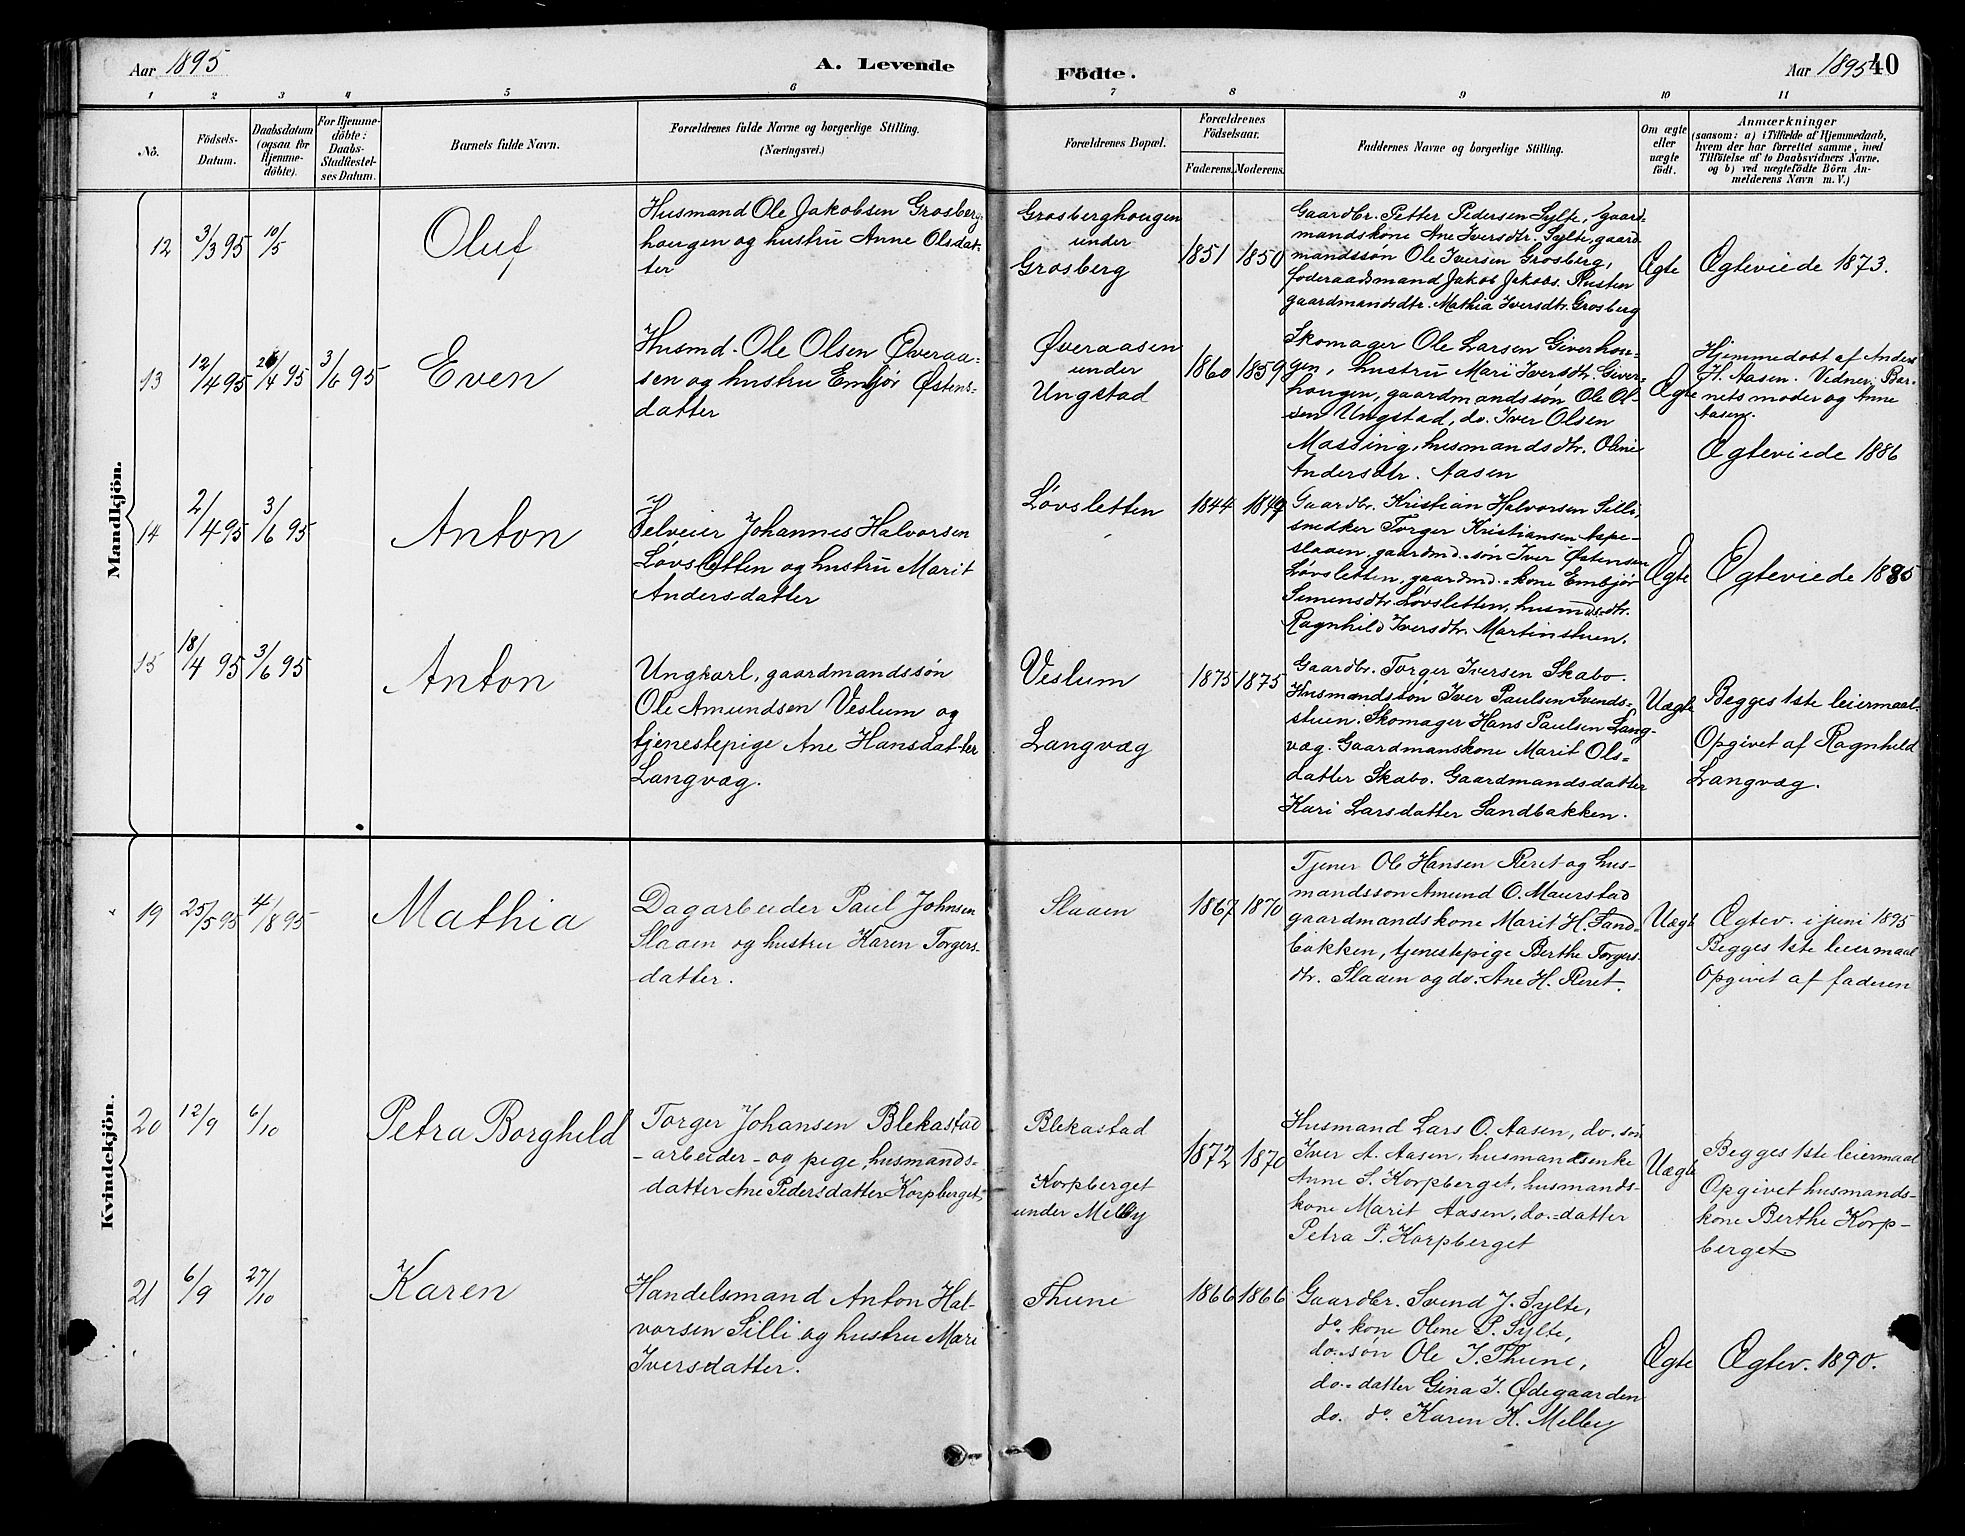 Aar 1895
A. Levende
Födte.
Aar 1895
40
1 2 3 4 5 6 7 8 9 10 11
No.
Födsels-
Datum.
Daabsdatum
(ogsaa for
Hjemme-
döbte).
For Hjemme-
döbte:
Daabs-
Stadfæstel-
ses Datum.
Barnets fulde Navn.
Forældrenes fulde Navne og borgerlige Stilling.
(Næringsvei.)
Forældrenes Bopæl.
Forældrenes
Födselsaar.
Faderens. Moderens.
Faddernes Navne og borgerlige Stilling.
Om ægte
eller
uægte
födt.
Anmærkninger
(saasom: a) i Tilfælde af Hjemmedaab,
hvem der har forrettet samme, med
Tilföielse af to Daabsvidners Navne.
og b) ved uægtefödte Börn An-
melderens Navn m. V.)
Mandkjön.
12 3/3 95 10/5
Oluf
Husmand Ole Jakobsen Grosberg-
hougen og hustru Anne Olsdat-
ter
Grosberghougen
under
Grosberg
1851 1850
Gaardbr. Petter Pedersen Sylte, gaard-
mandskone Ane Iversdtr. Sylte, gaard
mandssøn Ole Iversen Grosberg,
foderaadsmand Jakob Jakobs. Rusten
gaardmandsdtr. Mathia Iversdtr. Grosberg
Ægte
Ægteviede 1873.
13 12/4 95 26/4 95 3/6 95
Even
Husmd. Ole Olsen Øveraa-
sen og hustru Embjør Østens-
datter
Øveraasen
under
Ungstad
1860 1859
Skomager Ole Larsen Giverhou-
gen, hustru Mari Iversdtr. Giver-
hougen, gaardmandssøn Ole Ol-
sen Ungstad, do. Iver Olsen
Massing, husmandsdtr. Oline
Andersdtr. Aasen
Ægte
Hjemmedøbt af Anders
H. Aasen. Vidner: Bar-
nets moder og Anne
Aasen.
Ægteviede 1886
14 2/4 95 3/6 95
Anton
Selveier Johannes Halvorsen
Løvsletten og hustru Marit
Andersdatter
Løvsletten
1844 1849
Gaardbr. Kristian Halvorsen Silli,
snedker Torger Kristiansen Aspe-
slaaen, gaardmd.søn Iver Østensen
Løvsletten, gaardmd.kone Embjør
Simensdtr Løvsletten, husmdsdtr.
Ragnhild Iversdtr. Martinstuen.
Ægte
Ægteviede 1885
15 18/4 95 3/6 95
Anton
Ungkarl, gaardmandssøn
Ole Amundsen Veslum og
tjenestepige Ane Hansdatter
Langvag.
Veslum
Langvag
1875 1875
Gaardbr. Torger Iversen Skabo.
Husmandssøn Iver Paulsen Svends-
stuen. Skomager Hans Paulsen Lang-
vag. Gaardmanskone Marit Ols-
datter Skabo. Gaardmandsdatter
Kari Larsdatter Sandbakken.
Uægte
Begges 1ste leiermaal.
Opgivet af Ragnhild
Langvag.
Kvindekjön.
19 25/5 95 4/8 95
Mathia
Dagarbeider Paul Johnsen
Slaaen og hustru Karen Torgers-
datter.
Slaaen
1867 1870
Tjener Ole Hansen Reret og hus-
mandssøn Amund O. Maurstad
gaardmandskone Marit H. Sand-
bakken, tjenestepige Berthe Torgers-
dtr. Slaaen og do. Ane H. Reret.
Uægte
Ægtev. i juni 1895
Begges 1ste leiermaal
Opgivet af faderen
20 12/9 6/10
Petra Borghild
Torger Johansen Blekastad
-arbeider- og pige, husmands-
datter Ane Pedersdatter Korpberget
Blekastad
Korpberget
under Melby
1872 1870
Husmand Lars O. Aasen, do. søn
Iver A. Aasen, husmandsenke
Anne S. Korpberget, husmands-
kone Marit Aasen, do.-datter
Petra P. Korpberget
Uægte
Begges 1ste leiermaal
Opgivet husmands-
kone Berthe Korp-
berget
21 6/9 27/10
Karen
Handelsmand Anton Hal-
vorsen Silli og hustru Mari
Iversdatter.
Thune
1866 1866
Gaardbr. Svend J. Sylte,
do. kone Oline P. Sylte,
do. søn Ole I. Thune,
do.-datter Gina I. Ødegaarden
do. do. Karen K. Melby
Ægte
Ægtev. 1890.